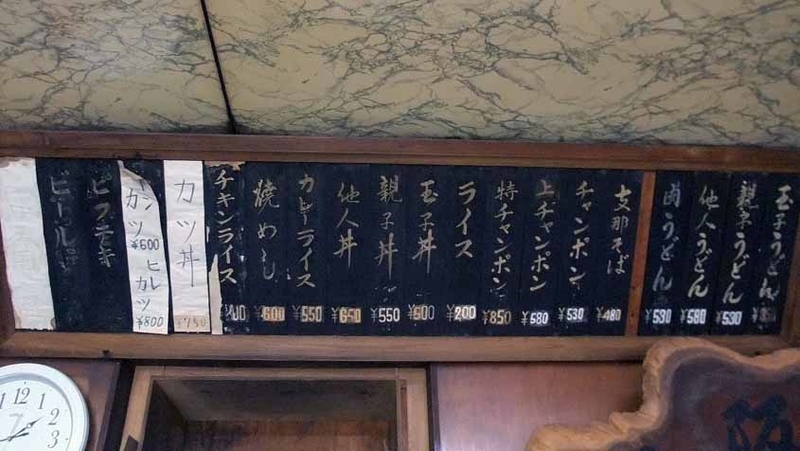 玉子うどん
親子うどん ¥530
他人うどん ¥580
肉うどん ¥530
支那そば ¥480
チャンポン ¥530
上チャンポン ¥580
特チャンポン ¥850
ライス ¥200
玉子丼 ¥500
親子丼 ¥550
他人丼 ¥650
カレーライス ¥550
焼めし ¥600
チキンライス
カツ丼 ¥750
カツ ¥600
ヒレカツ ¥800
ビフテキ
ビール
12
1
2
3
阪